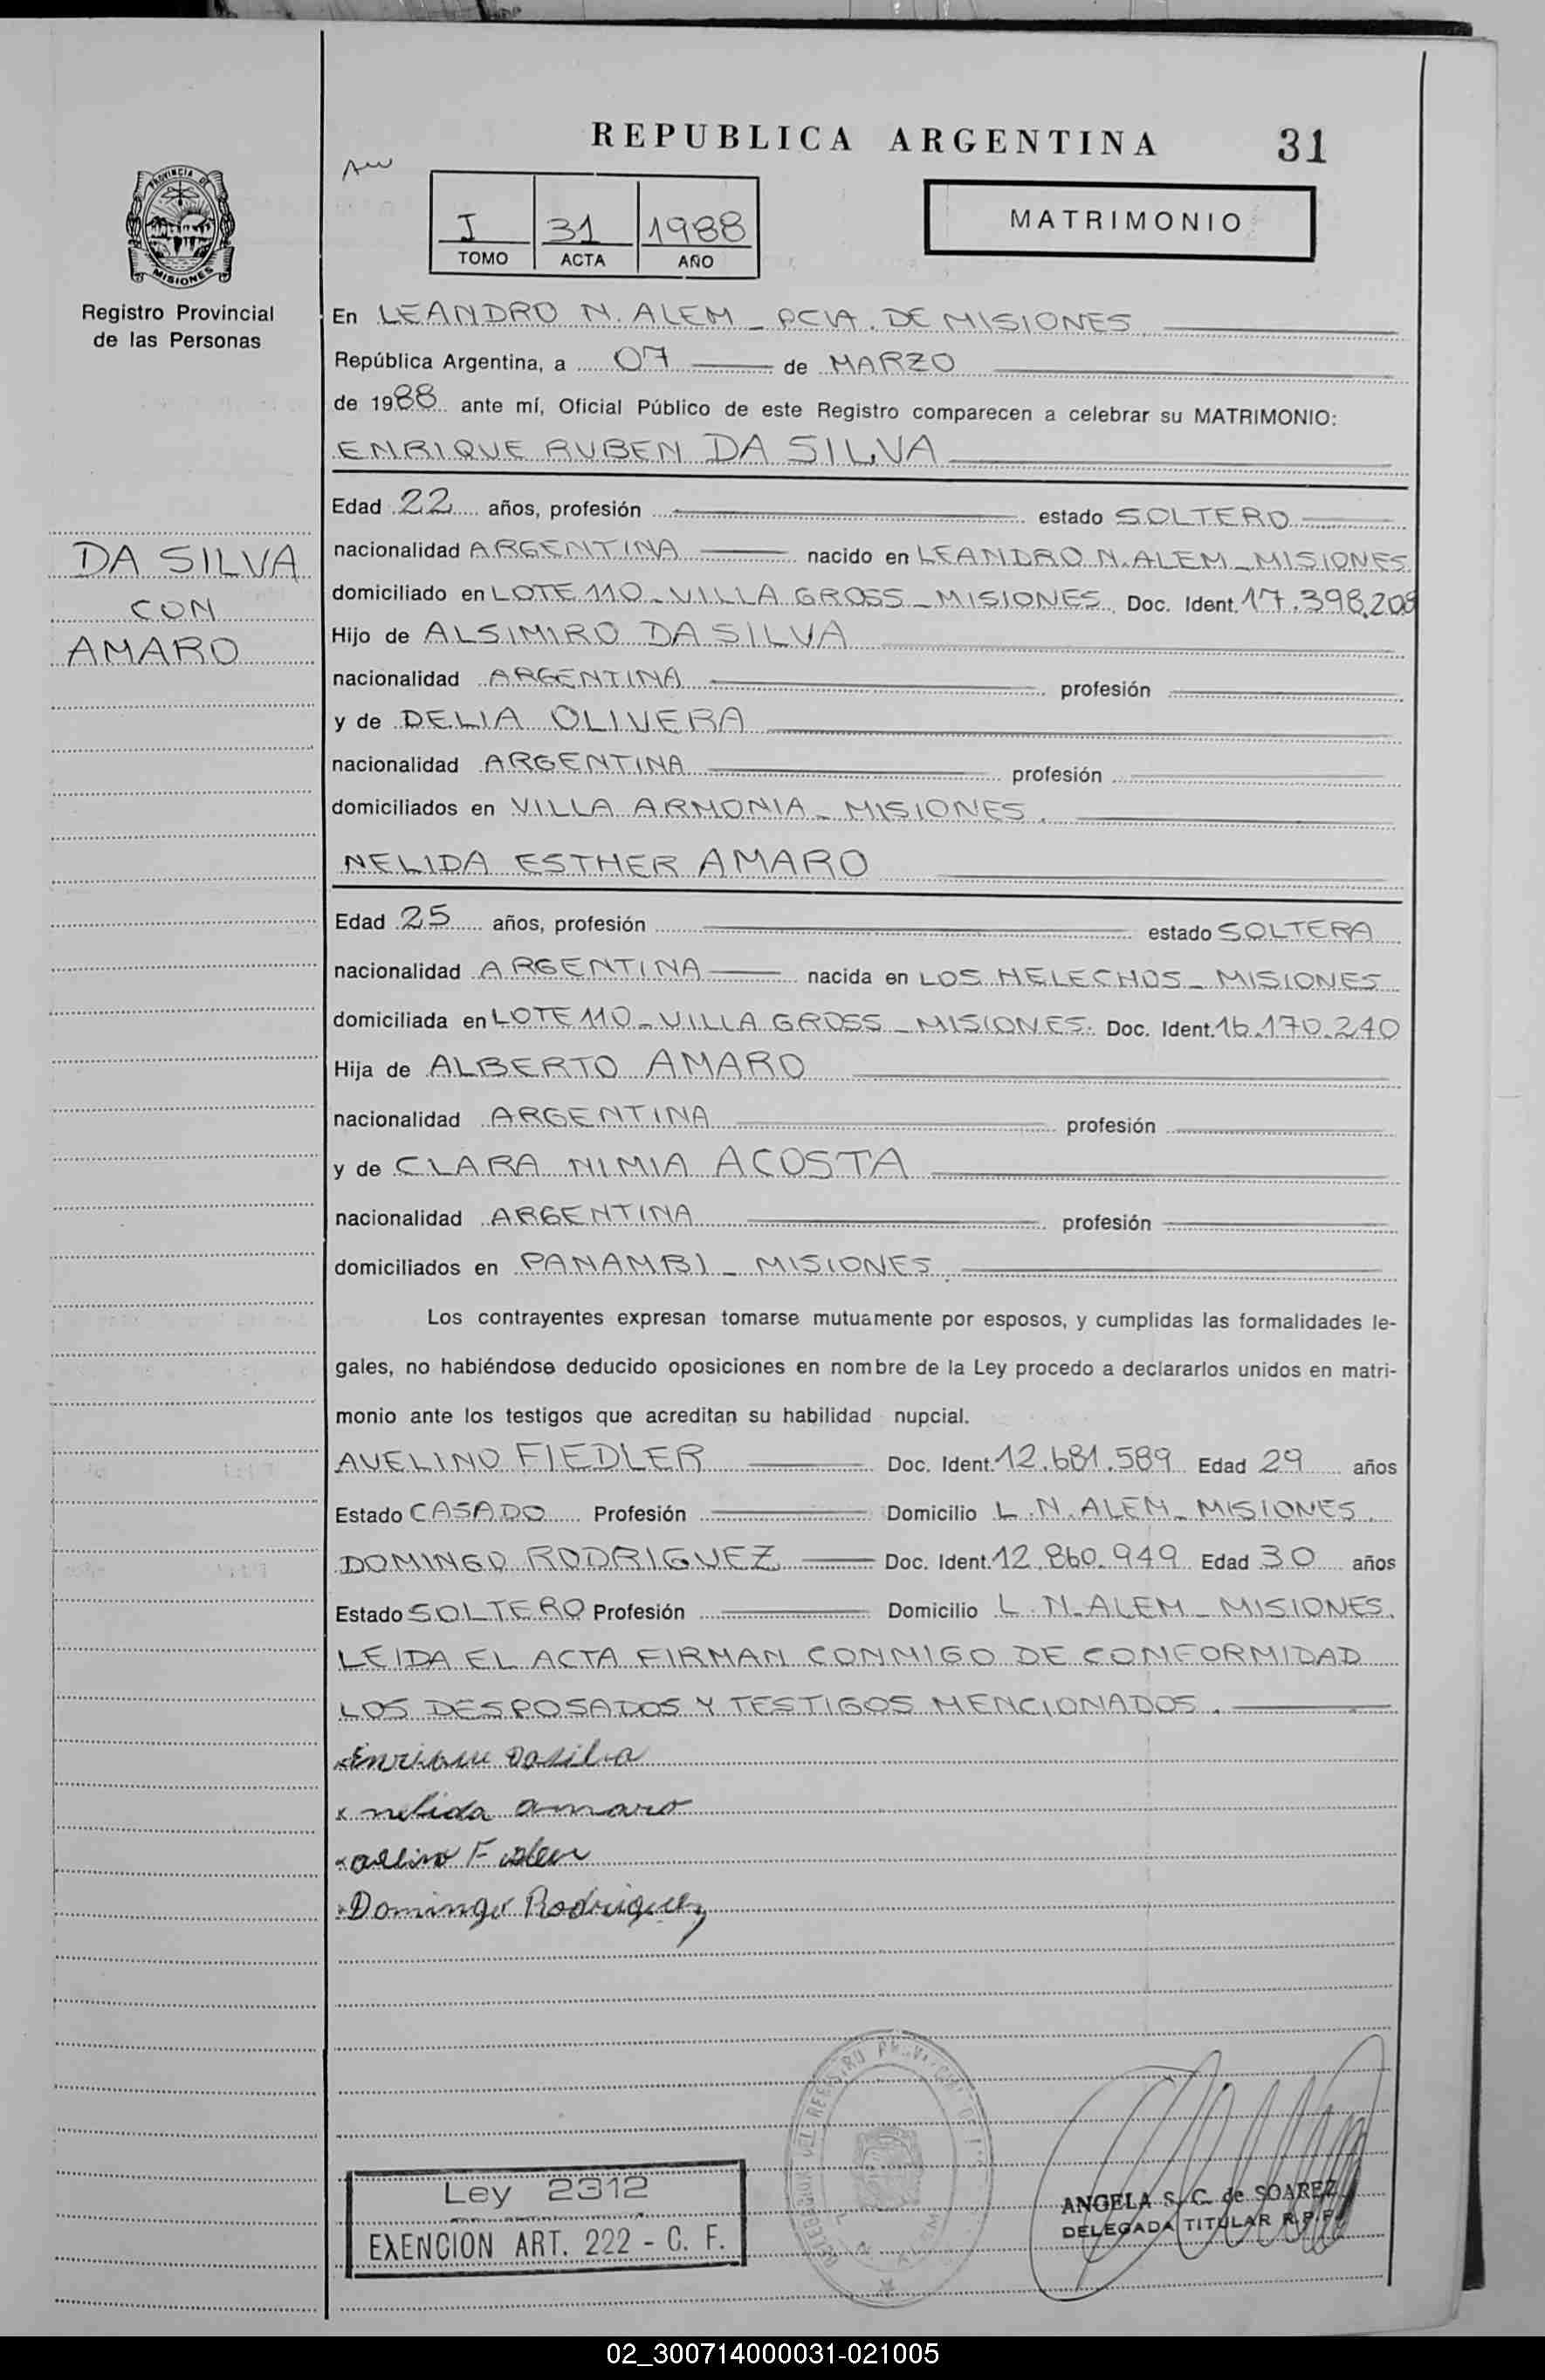 REPUBLICA ARGENTINA 31
PROVINCIA DE MISIONES
Registro Provincial
de las Personas
I 31 1988
TOMO ACTA AÑO
MATRIMONIO
En LEANDRO N. ALEM - PCIA. DE MISIONES
República Argentina, a 07 de MARZO
de 1988 ante mí, Oficial Público de este Registro comparecen a celebrar su MATRIMONIO:
ENRIQUE RUBEN DA SILVA
Edad 22 años, profesión estado SOLTERO
DA SILVA
CON
AMARO
nacionalidad ARGENTINA nacido en LEANDRO N. ALEM - MISIONES
domiciliado en LOTE 110 - VILLA GROSS - MISIONES. Doc. Ident. 17.398.208
Hijo de ALSIMIRO DA SILVA
nacionalidad ARGENTINA profesión
y de DELIA OLIVERA
nacionalidad ARGENTINA profesión
domiciliados en VILLA ARMONIA - MISIONES.
NELIDA ESTHER AMARO
Edad 25 años, profesión estado SOLTERA
nacionalidad ARGENTINA nacida en LOS HELECHOS - MISIONES
domiciliada en LOTE 110 - VILLA GROSS - MISIONES. Doc. Ident. 16.170.240
Hija de ALBERTO AMARO
nacionalidad ARGENTINA profesión
y de CLARA NIMIA ACOSTA
nacionalidad ARGENTINA profesión
domiciliados en PANAMBI - MISIONES.
Los contrayentes expresan tomarse mutuamente por esposos, y cumplidas las formalidades le-
gales, no habiéndose deducido oposiciones en nombre de la Ley procedo a declararlos unidos en matri-
monio ante los testigos que acreditan su habilidad nupcial.
AVELINO FIEDLER Doc. Ident. 12.681.589 Edad 29 años
Estado CASADO Profesión Domicilio L.N. ALEM - MISIONES.
DOMINGO RODRIGUEZ Doc. Ident. 12.860.949 Edad 30 años
Estado SOLTERO Profesión Domicilio L.N. ALEM - MISIONES.
LEIDA EL ACTA FIRMAN CONMIGO DE CONFORMIDAD
LOS DESPOSADOS Y TESTIGOS MENCIONADOS.
Enrique Dasilva
x nelida amaro
Domingo Rodriguez
Ley 2312
EXENCION ART. 222 - C. F.
ANGELA S. C. de SOAREZ
DELEGADA TITULAR R.P.P.
02_300714000031-021005